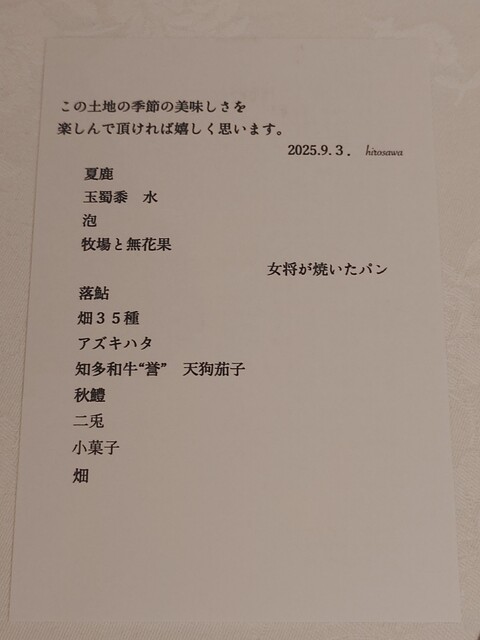 この土地の季節の美味しさを
楽しんで頂ければ嬉しく思います。
2025.9.３. hirosawa
夏鹿
玉蜀黍　水
泡
牧場と無花果
女将が焼いたパン
落鮎
畑３５種
アズキハタ
知多和牛“誉”　天狗茄子
秋鱧
二兎
小菓子
畑